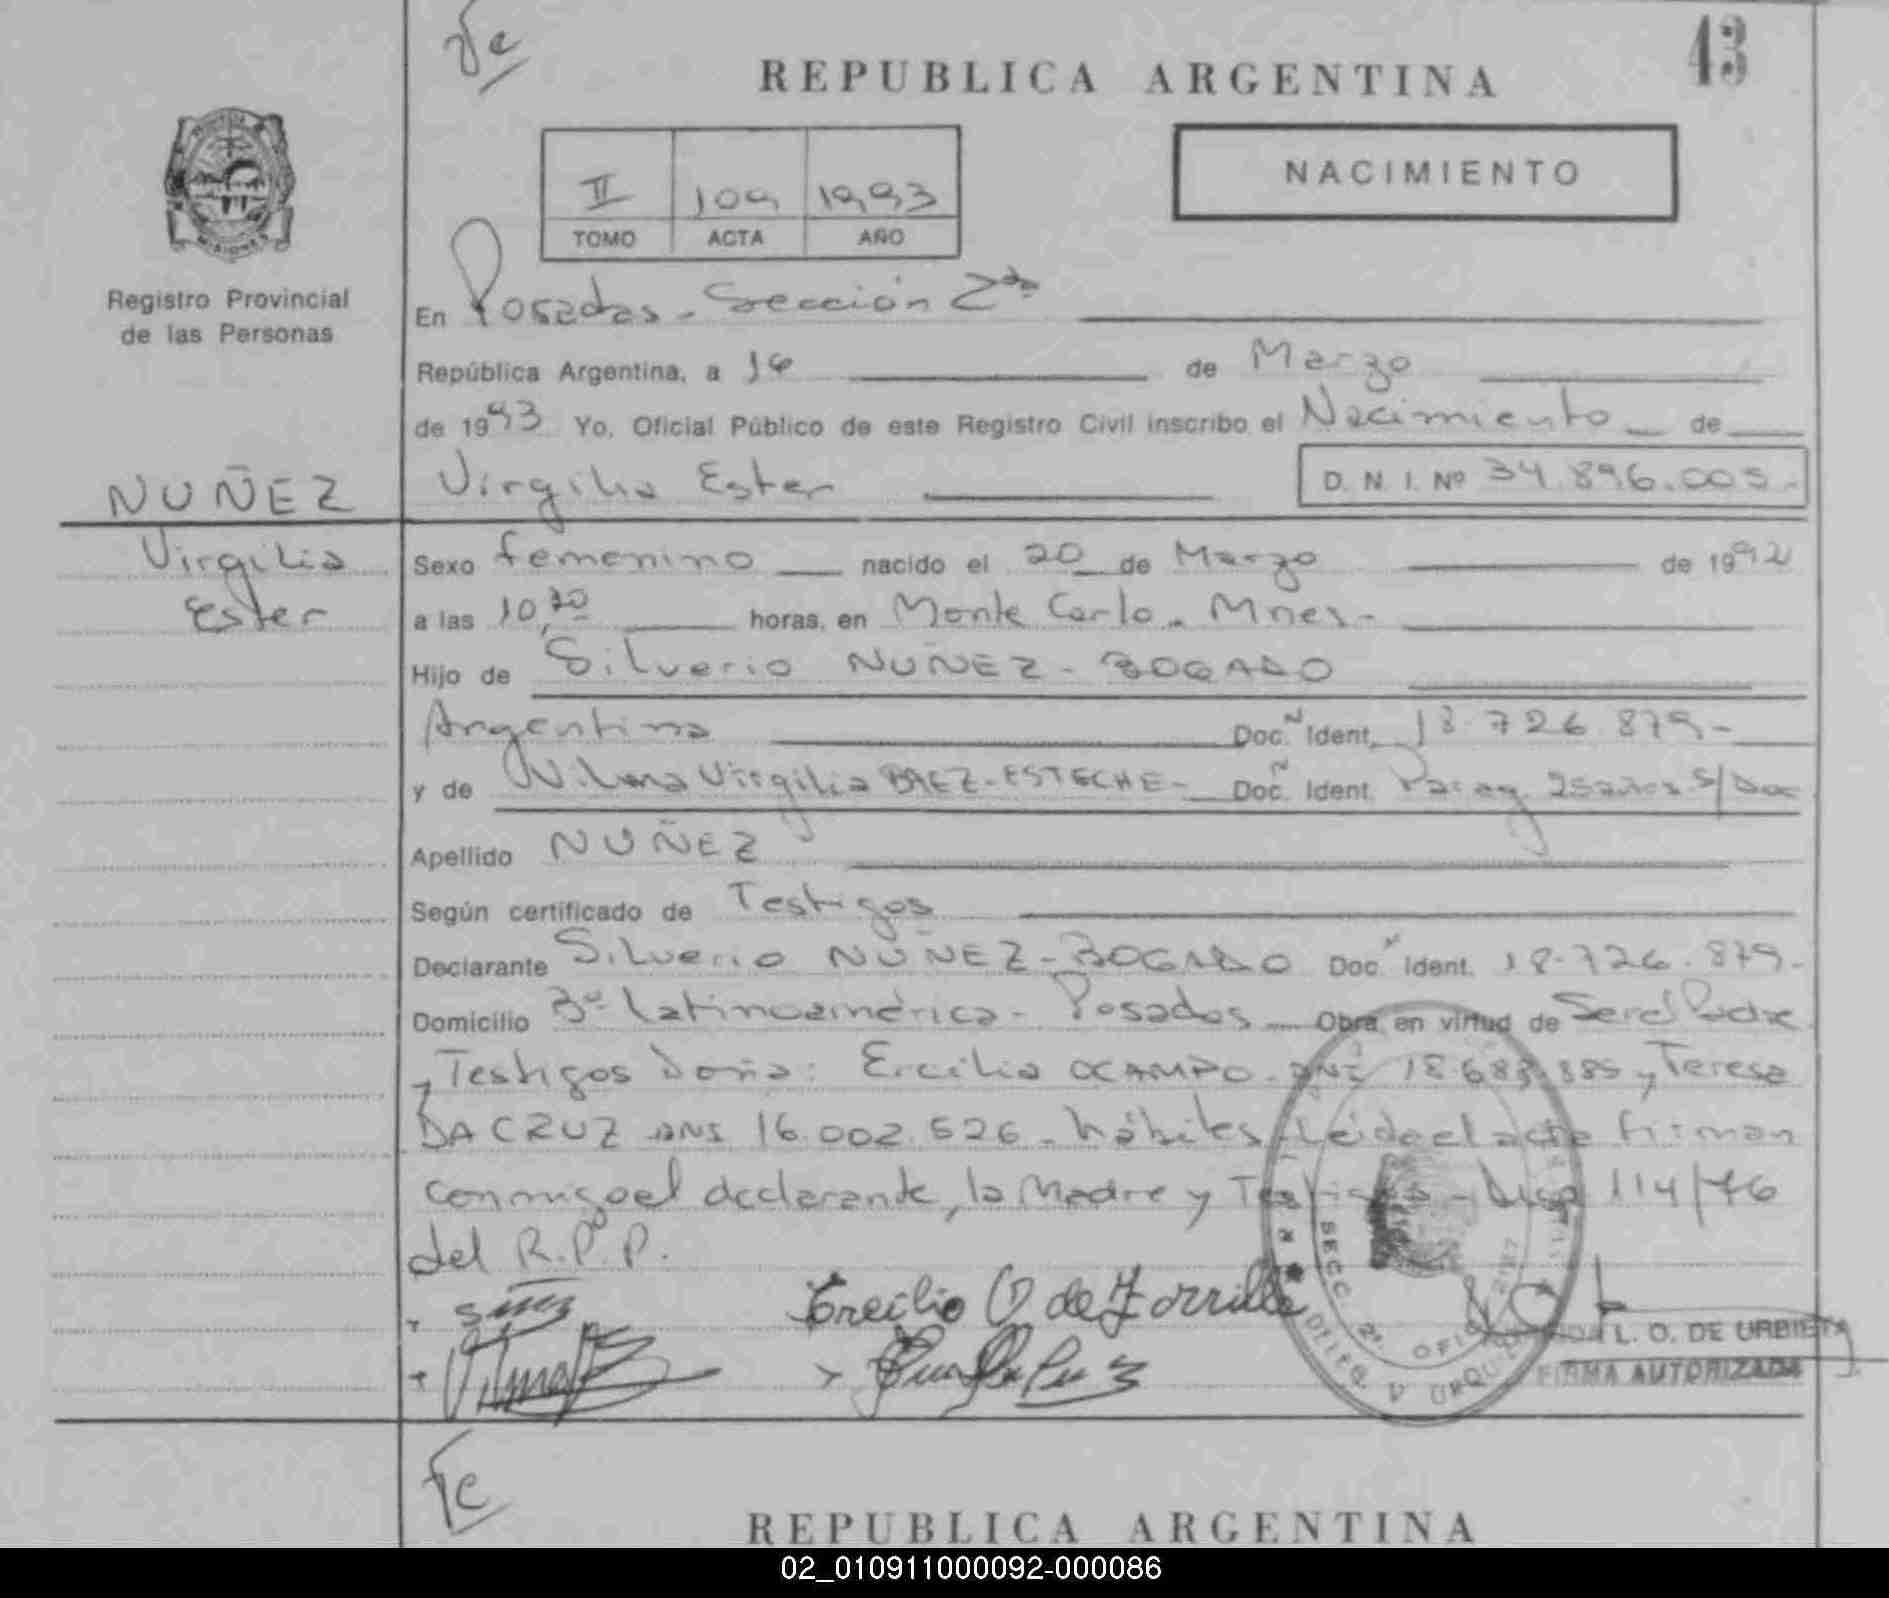 REPUBLICA ARGENTINA
43
II 109 1993
TOMO ACTA AÑO
NACIMIENTO
Registro Provincial
de las Personas
En Posadas - Sección 2da
República Argentina, a 16 de Marzo
de 1993 Yo, Oficial Público de este Registro Civil inscribo el Nacimiento de
NUÑEZ
Virgilia Ester D. N. I. Nº 34.896.005.-
Virgilia
Ester
Sexo femenino nacido el 20 de Marzo de 1992
a las 10,20 horas, en Monte Carlo - Mnes -
Hijo de Silverio NUÑEZ - BOGADO
Argentina Doc. Ident. 18.726.879-
y de Wilma Virgilia BAEZ-ESTECHE- Doc. Ident. Parag. 25 años S/Doc
Apellido NUÑEZ
Según certificado de Testigos
Declarante Silverio NUÑEZ-BOGADO Doc. Ident. 18.726.879-
Domicilio Bº Latinoamérica - Posadas Obra en virtud de Ser el Padre
y Testigos Doña: Ercilia OCAMPO - DNI 18.683.885 y Teresa
DA CRUZ DNI 16.002.526 - hábiles - Leida el acta firman
conmigo el declarante, la Madre y Testigos - Disp 114/76
del R.P.P.
Ercilia O de Zorrilla
SECC. 2ª.
L. O. DE URBIETA
FIRMA AUTORIZADA
REPUBLICA ARGENTINA
02_010911000092-000086